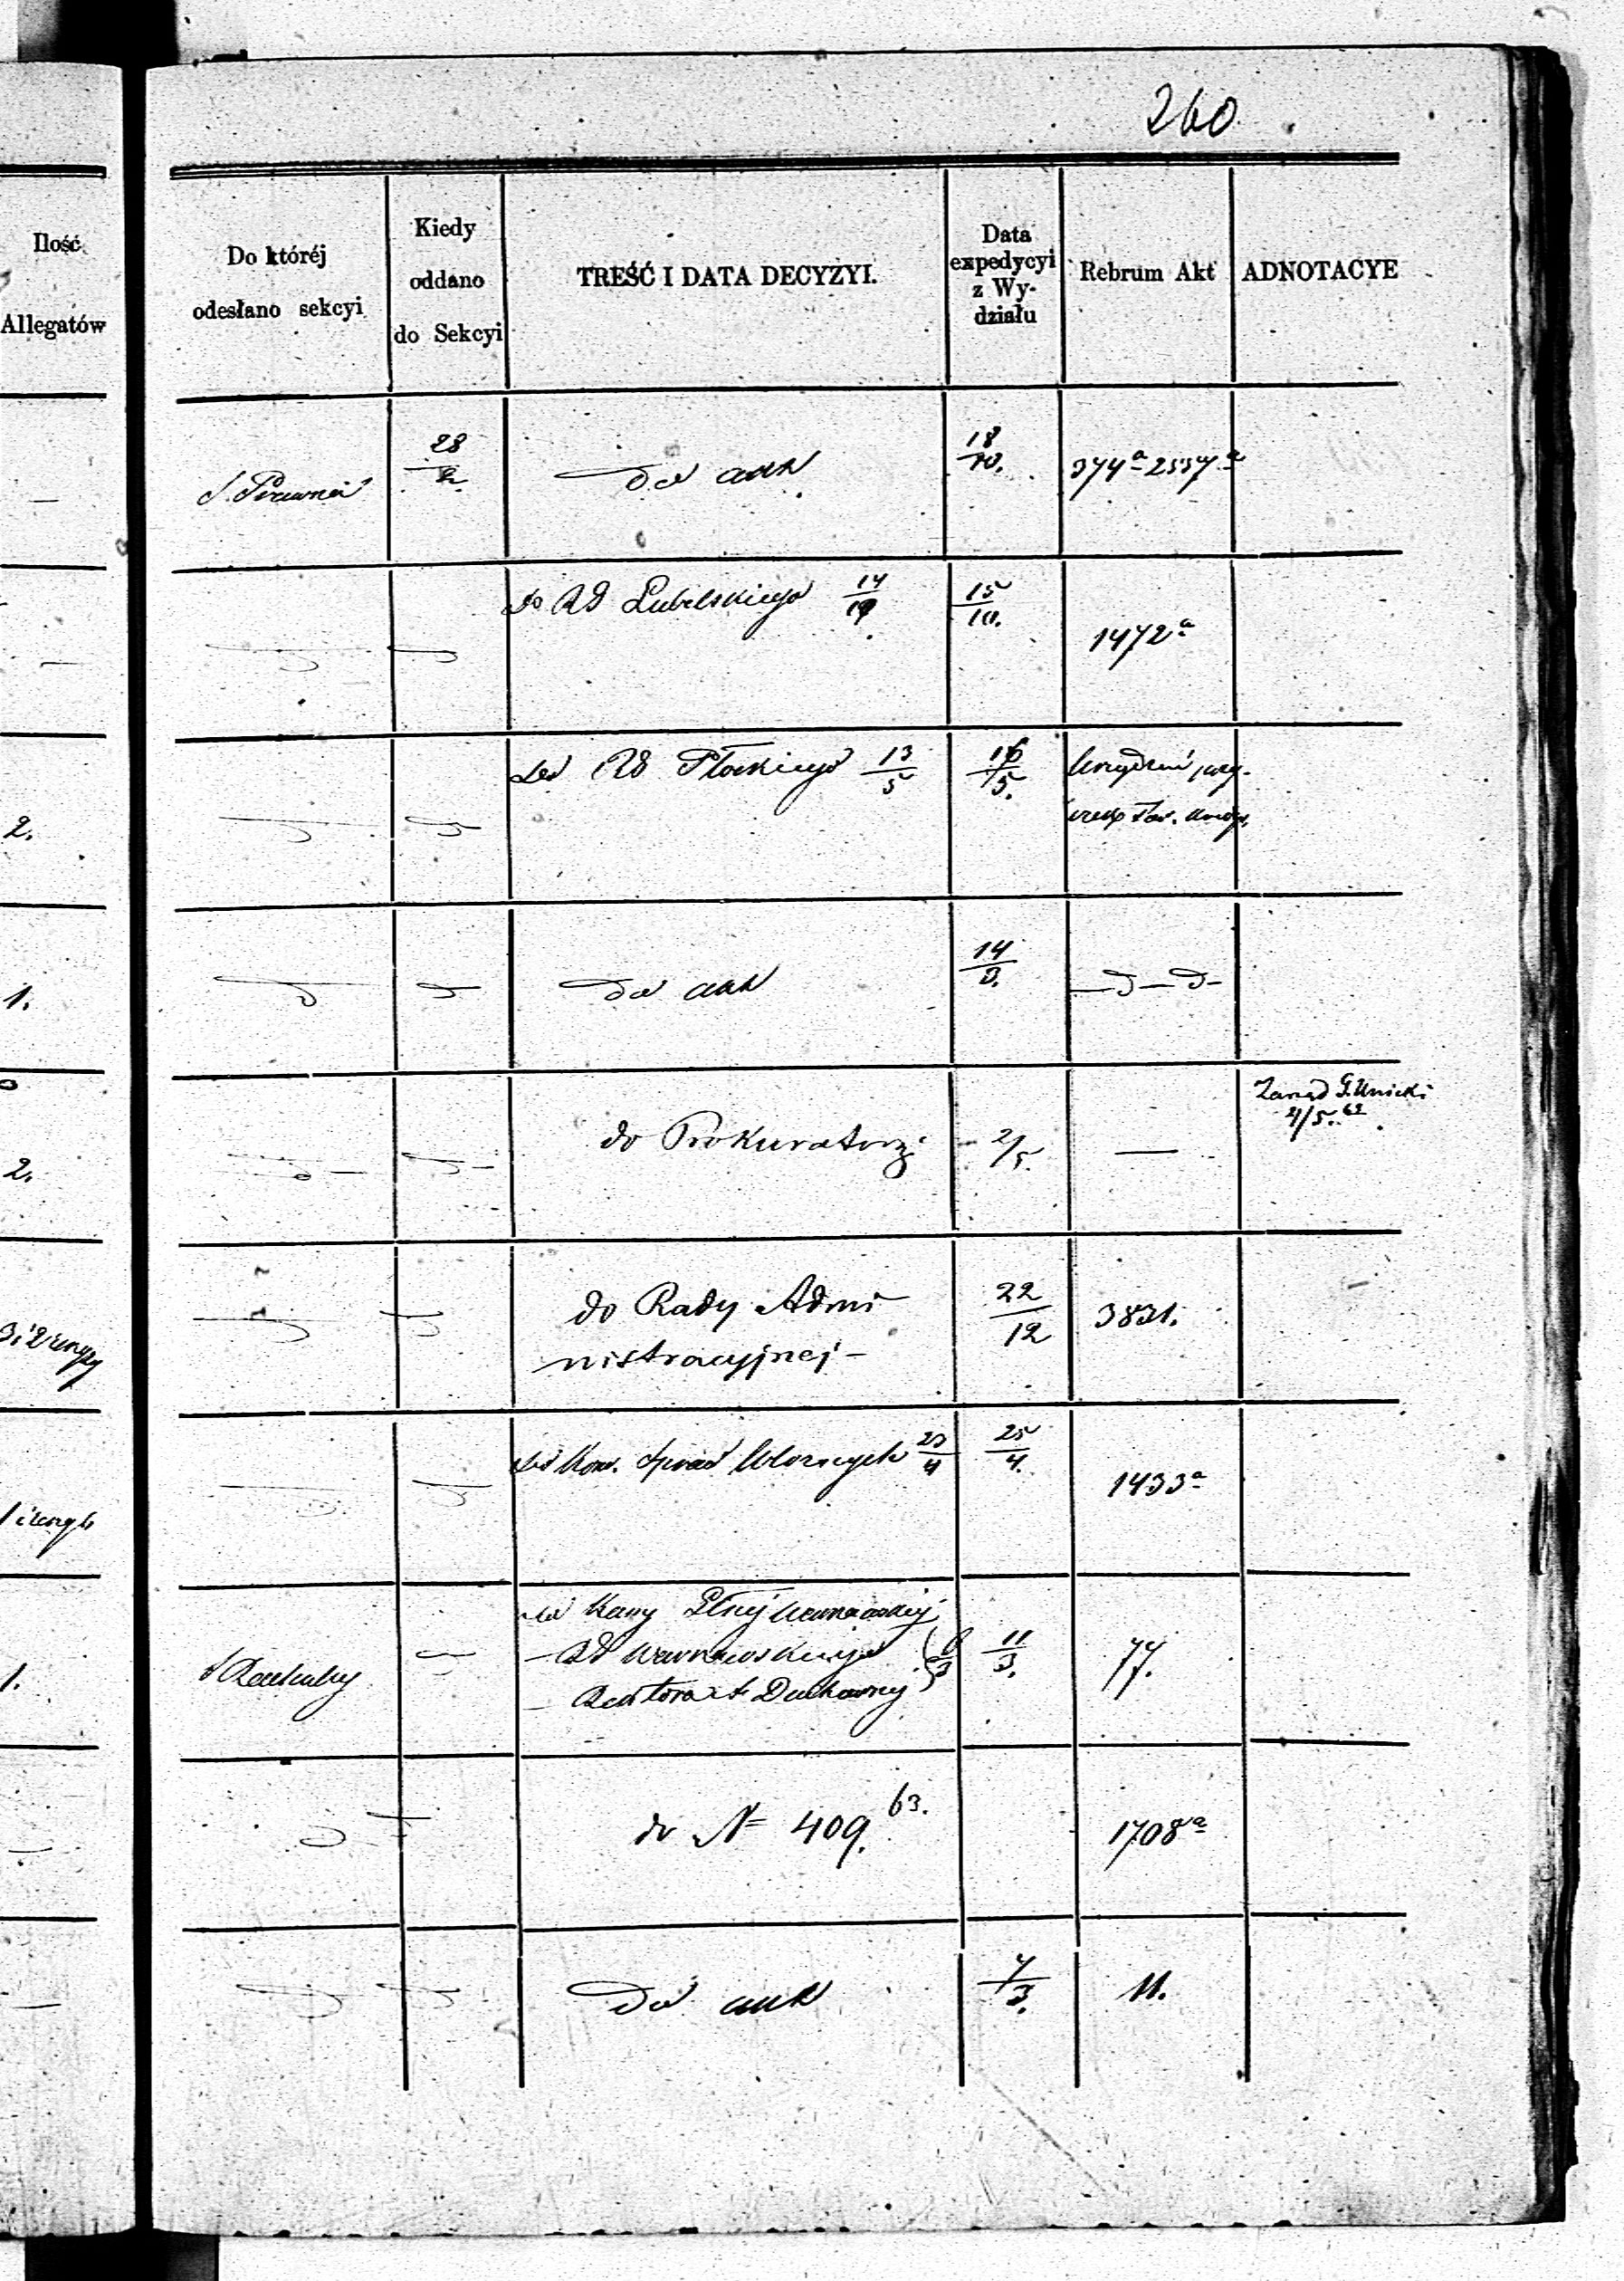 260
Ilość
Allegatów
Do któréj
odesłano sekcyi
Kiedy
oddano
do Sekcyi
TREŚĆ I DATA DECYZYI.
Data
expedycyi
z Wy-
działu
Rebrum Akt
ADNOTACYE
S. Prawnéj
28/2.
Do akt
18/10.
374a 2557a
do RG Lubelskiego 14/10
15/10.
1472a
2.
do RG Płockiego 13/5
16/5.
Tow. kredy.
1.
Do akt
14/3.
—D—D—
2.
do Prokuratorz.
2/5.
—
2/5. 62
do Rady Admi
nistracyjnej —
22/12
3831.
do Kom. Spraw 23/4
25/4.
1433a
1.
do Kasy Głnéj Warszawskiej
— RG Warszawskiego
— Duchowny
11/3.
77.
do № 409. 63.
1708a
Do akt
7/3.
11.